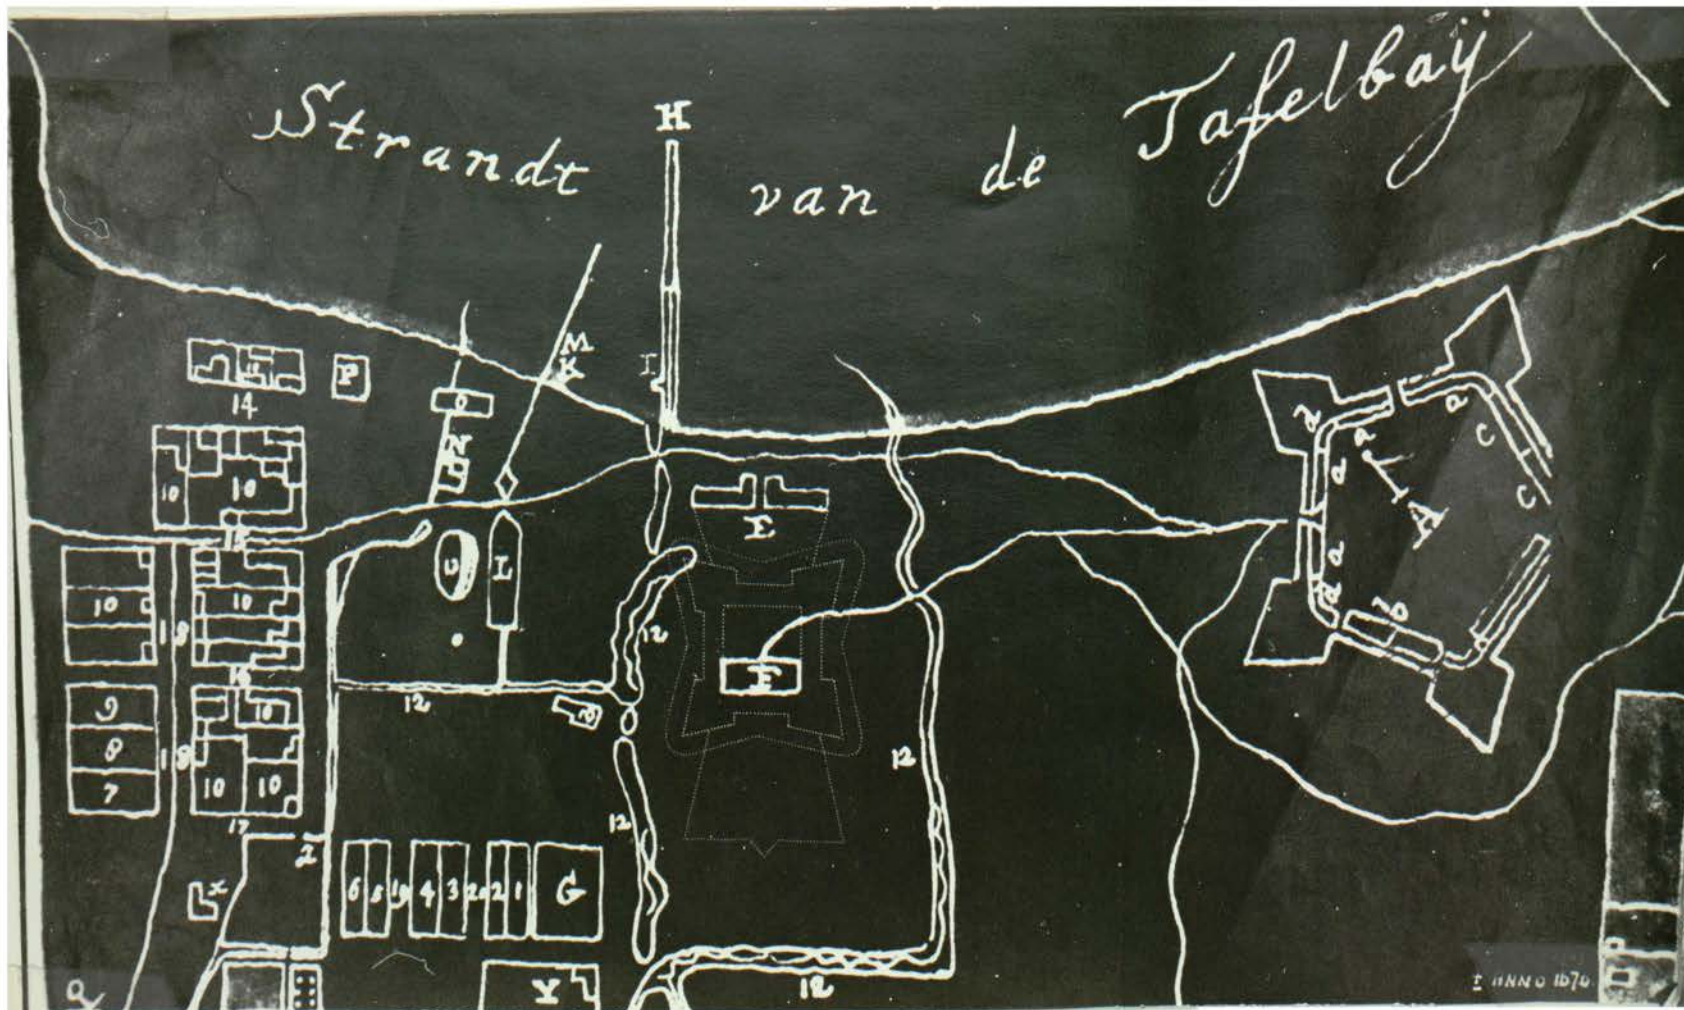 Strandt van de Tafelbaÿ
H
M
K
I
P
14
O
N
10
10
E
A
a
a
a
a
c
c
b
L
10
10
18
12
F
9
8
7
10
18
10
10
12
12
12
17
x
6
5
19
4
3
20
2
1
G
Y
12
I ANNO 1670